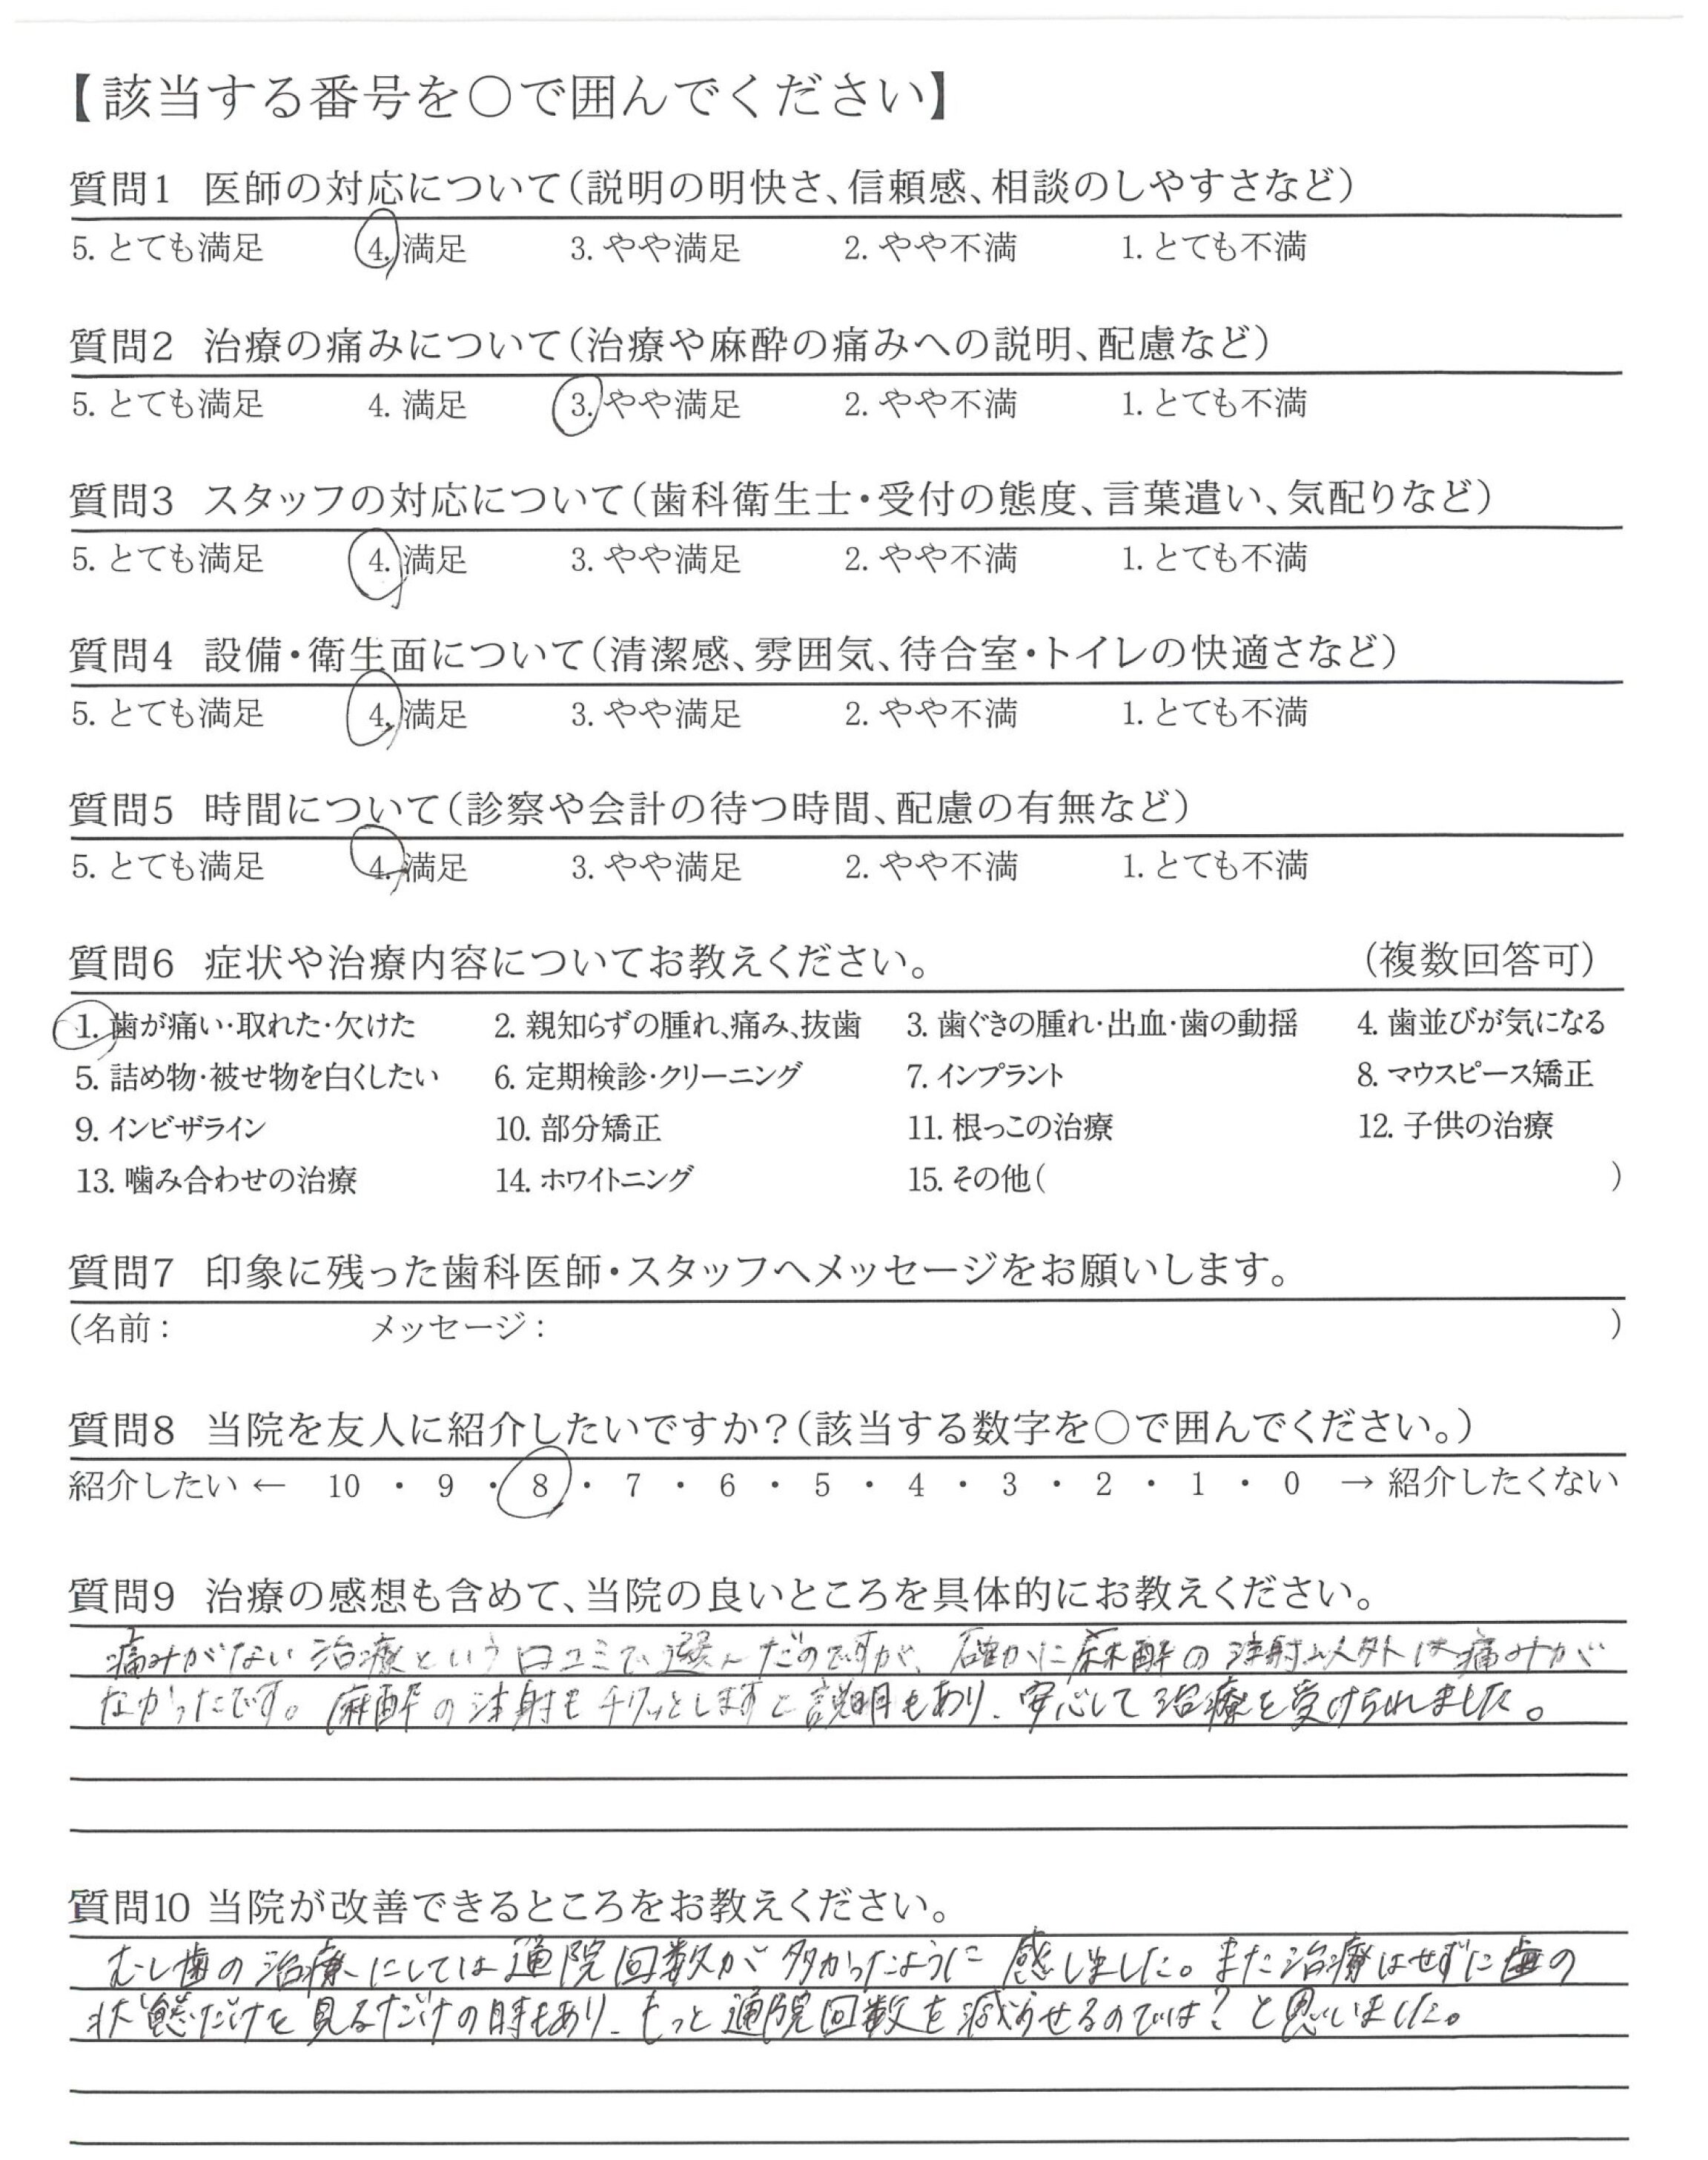 【該当する番号を○で囲んでください】
質問1 医師の対応について(説明の明快さ、信頼感、相談のしやすさなど)
5. とても満足 4. 満足 3. やや満足 2. やや不満 1. とても不満
質問2 治療の痛みについて(治療や麻酔の痛みへの説明、配慮など)
5. とても満足 4. 満足 3. やや満足 2. やや不満 1. とても不満
質問3 スタッフの対応について(歯科衛生士・受付の態度、言葉遣い、気配りなど)
5. とても満足 4. 満足 3. やや満足 2. やや不満 1. とても不満
質問4 設備・衛生面について(清潔感、雰囲気、待合室・トイレの快適さなど)
5. とても満足 4. 満足 3. やや満足 2. やや不満 1. とても不満
質問5 時間について(診察や会計の待つ時間、配慮の有無など)
5. とても満足 4. 満足 3. やや満足 2. やや不満 1. とても不満
質問6 症状や治療内容についてお教えください。 (複数回答可)
1. 歯が痛い・取れた・欠けた 2. 親知らずの腫れ、痛み、抜歯 3. 歯ぐきの腫れ・出血・歯の動揺 4. 歯並びが気になる
5. 詰め物・被せ物を白くしたい 6. 定期検診・クリーニング 7. インプラント 8. マウスピース矯正
9. インビザライン 10. 部分矯正 11. 根っこの治療 12. 子供の治療
13. 噛み合わせの治療 14. ホワイトニング 15. その他( )
質問7 印象に残った歯科医師・スタッフへメッセージをお願いします。
(名前: メッセージ: )
質問8 当院を友人に紹介したいですか?(該当する数字を○で囲んでください。)
紹介したい ← 10 ・ 9 ・ 8 ・ 7 ・ 6 ・ 5 ・ 4 ・ 3 ・ 2 ・ 1 ・ 0 → 紹介したくない
質問9 治療の感想も含めて、当院の良いところを具体的にお教えください。
痛みがない治療という口コミで選んだのですが、確かに麻酔の注射以外は痛みが
なかったです。麻酔の注射もチクッとしますと説明もあり、安心して治療を受けられました。
質問10 当院が改善できるところをお教えください。
むし歯の治療にしては通院回数が多かったように感じました。また治療はせずに歯の
状態だけを見るだけの時もあり、もっと通院回数を減らせるのでは?と思いました。